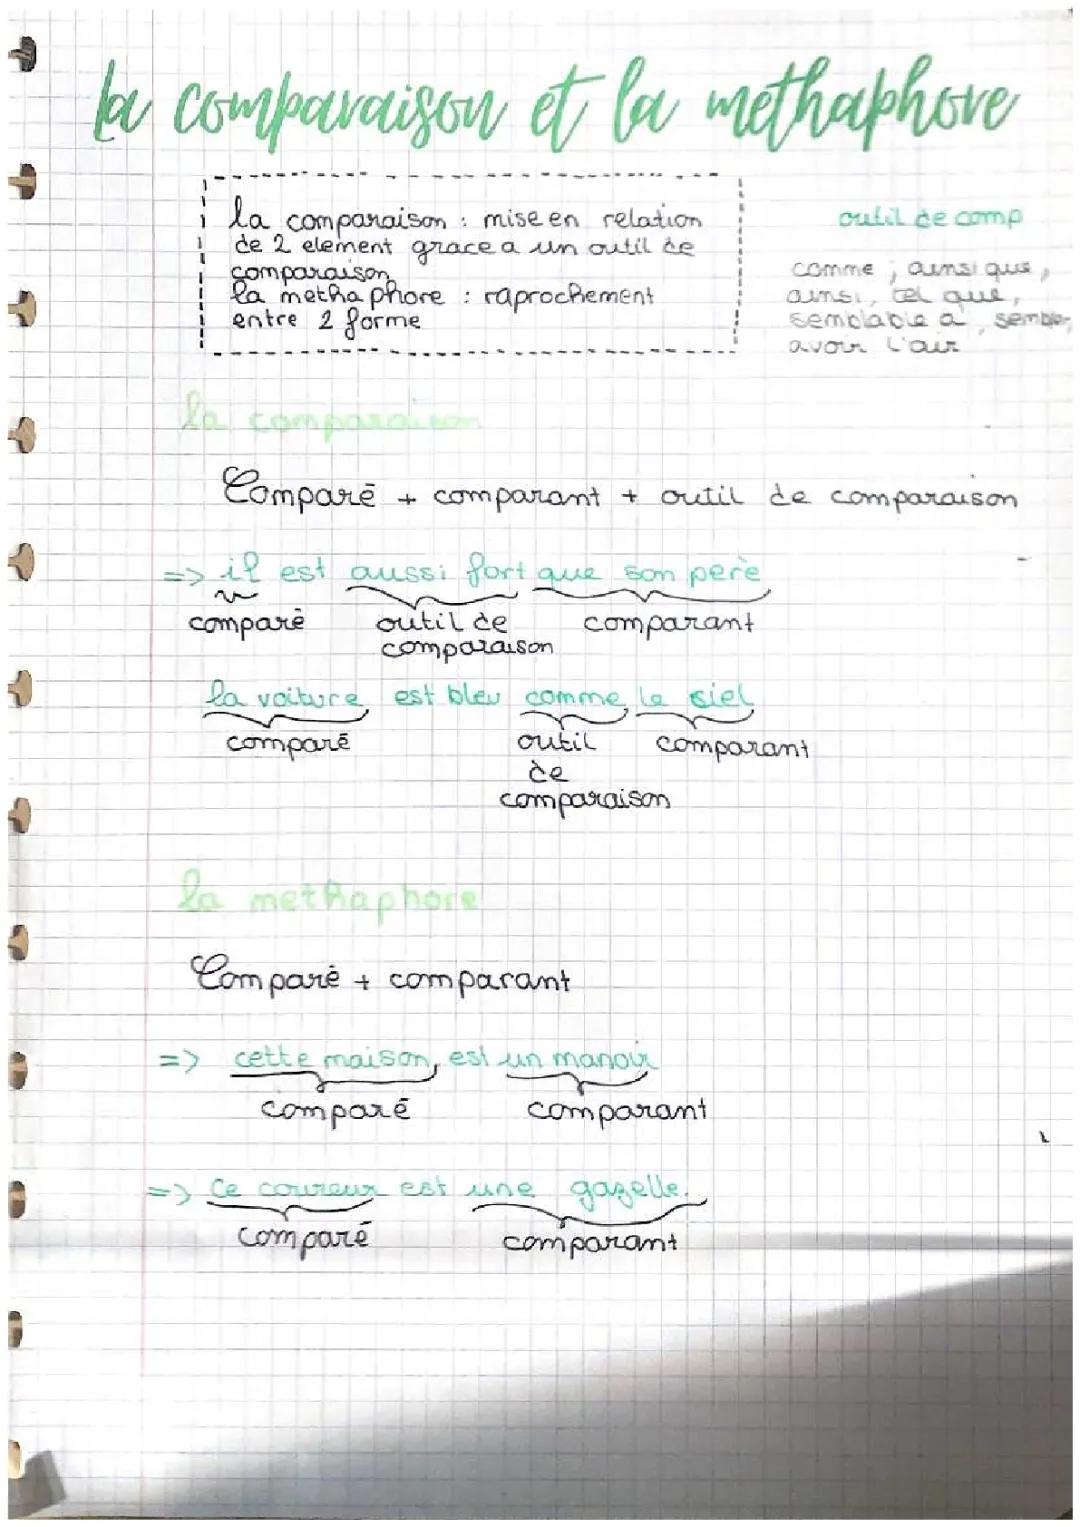 la comparaison et la methaphore
la comparaison : mise en relation
de 2 element grace a un outil de
comparaison
la methaphore : raprochement
entre 2 forme
outil de comp
comme, ainsi que,
ainsi, tel que,
semblable a, sembler,
avoir l'air
la comparaison
Comparé + comparant + outil de comparaison
=> il est aussi fort que son père
comparé outil de comparant
comparaison
la voiture est bleu comme le siel
comparé outil comparant
de
comparaison
la methaphore
Comparé + comparant
=> cette maison, est un manoir
comparé comparant
=> Ce coureur est une gazelle.
comparé comparant